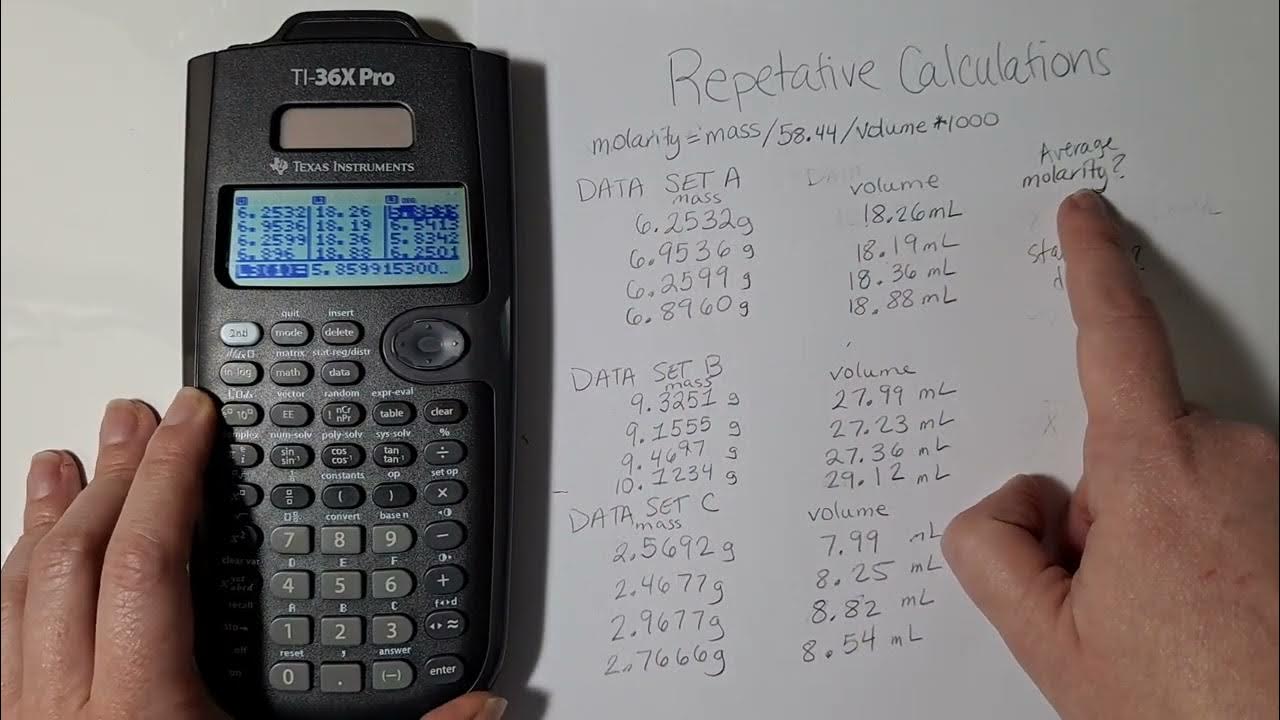 TI-36X Pro
TEXAS INSTRUMENTS
6.2532 18.26
6.9536 18.19 6.5413
6.2599 18.36 5.8342
6.896 18.88 6.2501
L3(1)=5.859915300..
quit insert
2nd mode delete
matrix stat-reg/distr
ln log math data
vector random expr-eval
EE nCr nPr table clear
num-solv poly-solv sys-solv %
sin sin-1 cos cos-1 tan tan-1 ÷
constants op set op
( ) ×
convert base n
7 8 9 −
D E F
clear var
4 5 6 +
recall A B C f◂▸d
sto→ 1 2 3 ◂▸≈
off reset answer
on 0 . (−) enter
Repetative Calculations
molarity=mass/58.44/volume*1000
Average
molarity?
DATA SET A volume
mass
6.2532g 18.26mL
6.9536 g 18.19 mL
6.2599 g 18.36 mL
6.8960 g 18.88 mL
DATA SET B volume
mass
9.3251 g 27.99 mL
9.1555 g 27.23 mL
9.4697 g 27.36 mL
10.1234 g 29.12 mL
DATA SET C volume
mass
2.5692 g 7.99 mL
2.4677g 8.25 mL
2.9677g 8.82 mL
2.7666g 8.54 mL